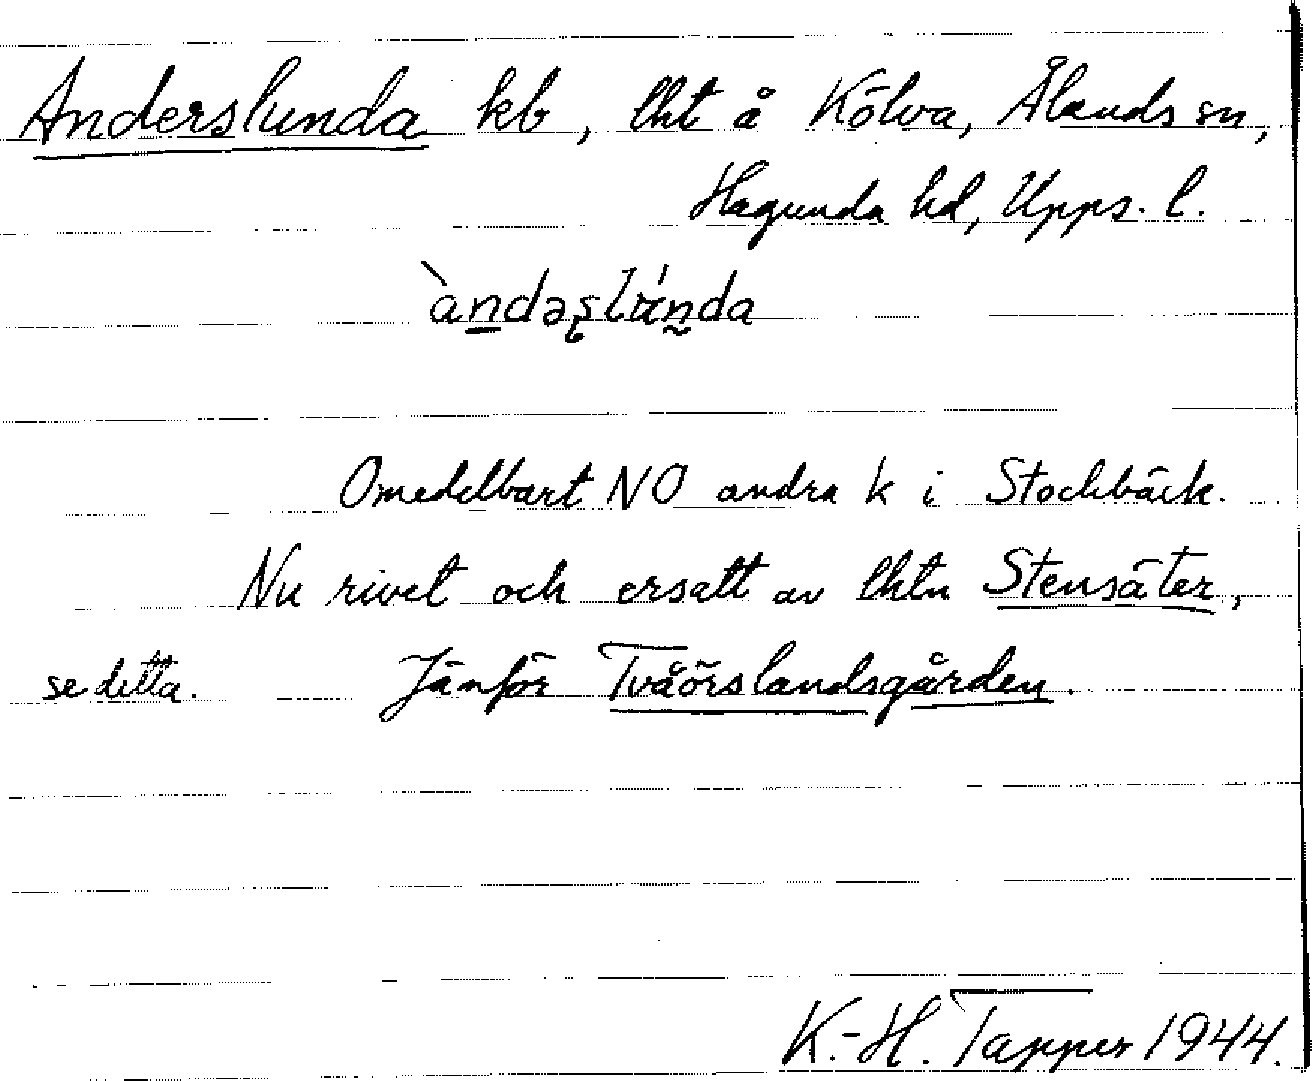 Anderslunda kb, lht å Kölva, Ålands sn,
Hagunda hd, Upps. l.
Omedelbart NO andra k i Stockbäck.
Nu rivet och ersatt av lhtn Stensäter,
se detta. Jämför Tvåörslandsgården.
K.-H. Tapper 1944.